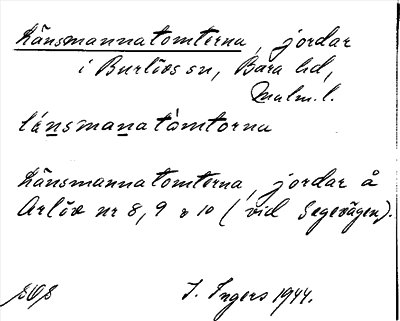 Länsmannatomterna, jordar
i Burlövs sn, Bara hd,
Malm. l.
länsmanatòmtorna
Länsmannatomterna, jordar å
Arlöv nr 8, 9 & 10 (vid Segevägen).
I. Ingers 1944.